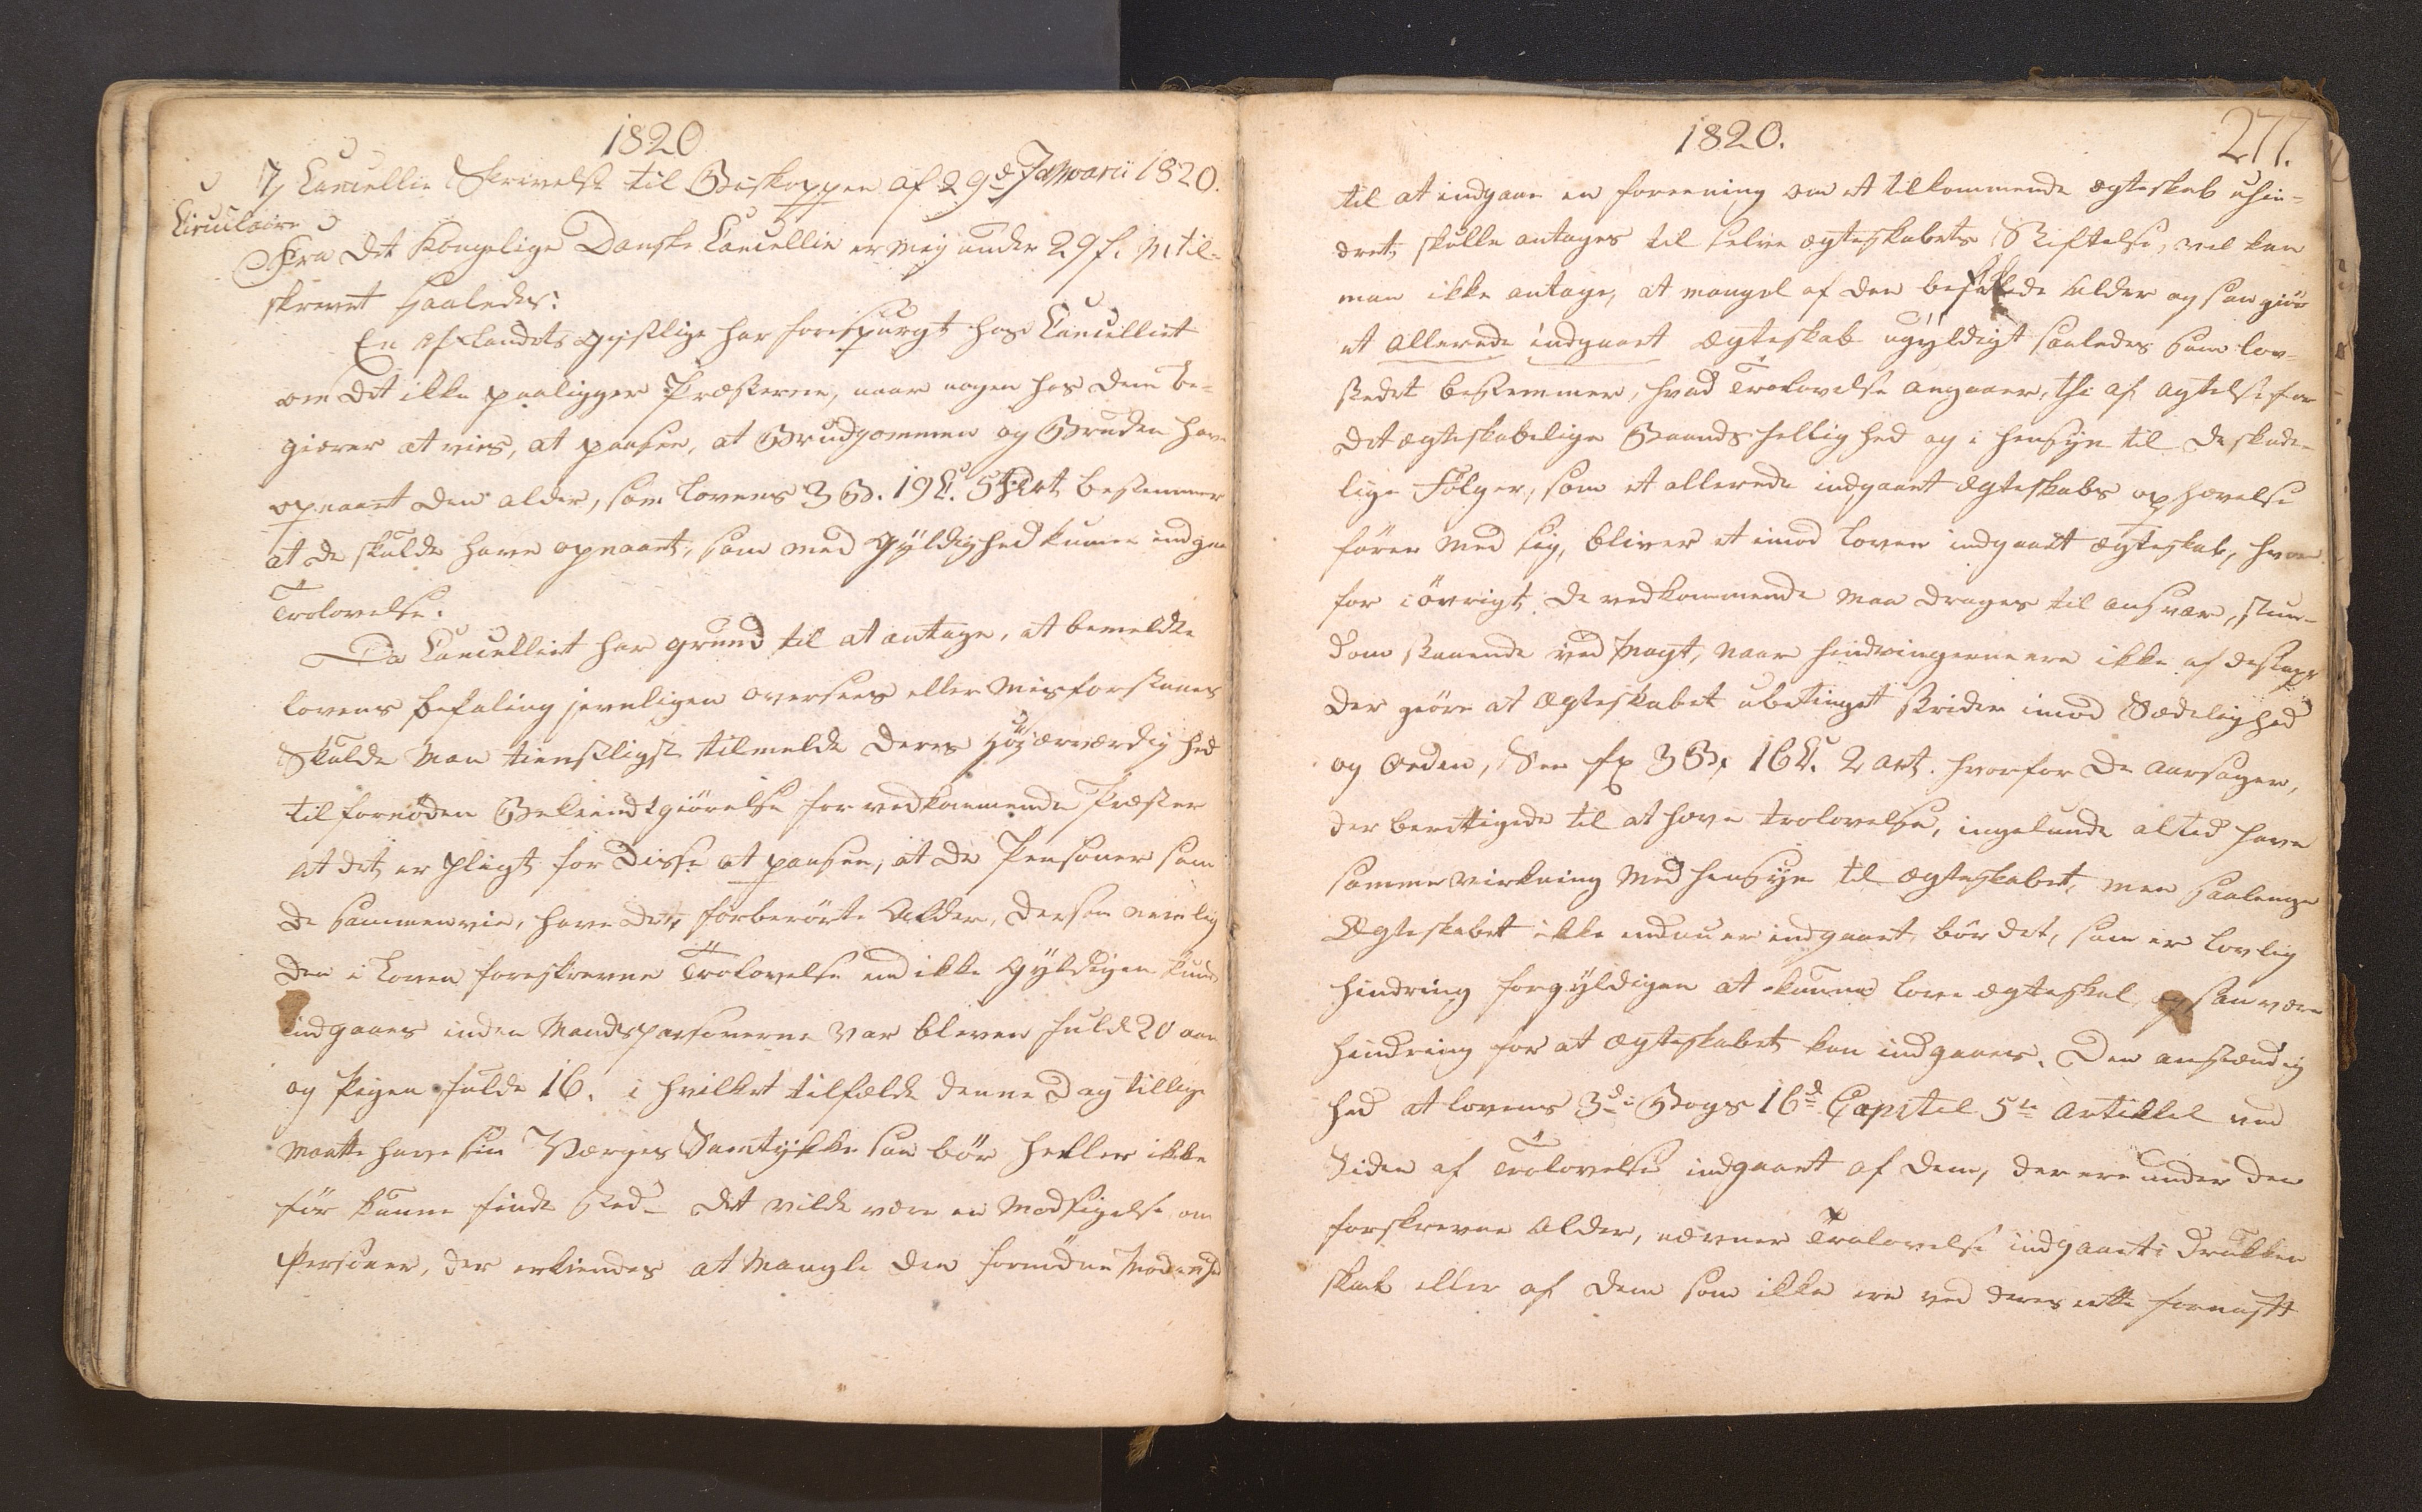 1820
7) Cancellie Skrivelse til Biskoppen af 29d Januarii 1820.
Circulaire
Fra Det Kongelige Danske Cancellie er mig under 29 f. M til-
skrevet saaledes:
En af Landets gejstlige har forespurgt hos Cancelliet
om det ikke paaligger Præsterne, naar nogen hos dem be-
giærer at vies, at paasee, at Brudgommen og Bruden have
opnaaet den alder, som Lovens 3 B. 19 C. 5 Art bestemmer
at de skulde have opnaaet, som med Gyldighed kunne indgaae
Trolovelse.
Da Cancelliet har grund til at antage, at bemeldte
Lovens befaling jevnligen oversees eller misforstaaes
skulde man tienstligst tilmelde Deres Højærværdighed
til fornøden Bekiendtgiørelse for vedkommende Præster
at det er pligt for Disse at paasee, at de Personer som
de sammenvie, have den forberørte Alder, dersom nemlig
den i Loven foreskrevne Trolovelse end ikke Gyldigen kunde
indgaaes inden Mandspersonerne var bleven fulde 20 aar
og Pigen fulde 16. i hvilket tilfælde denne Dag tillige
maatte have sin Værges Samtykke saa bør heller ikke
før kunne finde Sted - Det vilde være en Modsigelse om
Personer, der erkiendes at mangle den fornødne Modenhed
1820.
277.
til at indgaae en foreening om et tilkommende ægteskab uhin-
dret, skulle antages til selve ægteskabets Stiftelse, vel kan
man ikke antage, at mangel af den befalede Alder og saa giør
et allerede indgaaet ægteskab ugyldigt saaledes som lov-
stedet bestemmer, hvad Trolovelse angaaer, thi af agtelse for
det ægteskabelige Baands hellighed og i hensyn til de skade-
lige Følger, som et allerede indgaaet ægteskabs ophævelse
fører med sig, bliver et imod Loven indgaaet ægteskab, hvor
for iøvrigt de vedkommende maa drages til ansvar, stun-
dom staaende ved magt, naar hindringerne ere ikke af de
der giøre at ægteskabet ubetinget strider imod Sædelighed
og Orden, See fx 3 B. 16 C. 2 art. hvorfor de aarsager,
der berettigede til at hæve trolovelse, ingelunde altid have
samme virkning med hensyn til ægteskabet, men saalænge
Ægteskabet ikke endnu er indgaaet, bør det, som er lovlig
hindring for gyldigen at kunne love ægteskab og saa være
hindring for at ægteskabet kan indgaaes. Den omstændig
hed at Lovens 3d Bogs 16d Capitel 5te Artikkel ved
Siden af Trolovelse indgaaet af dem, der ere under den
forskrevne alder, nævner Trolovelse indgaaet i Drukken
skab eller af dem som ikke ere ved deres rette fornuft